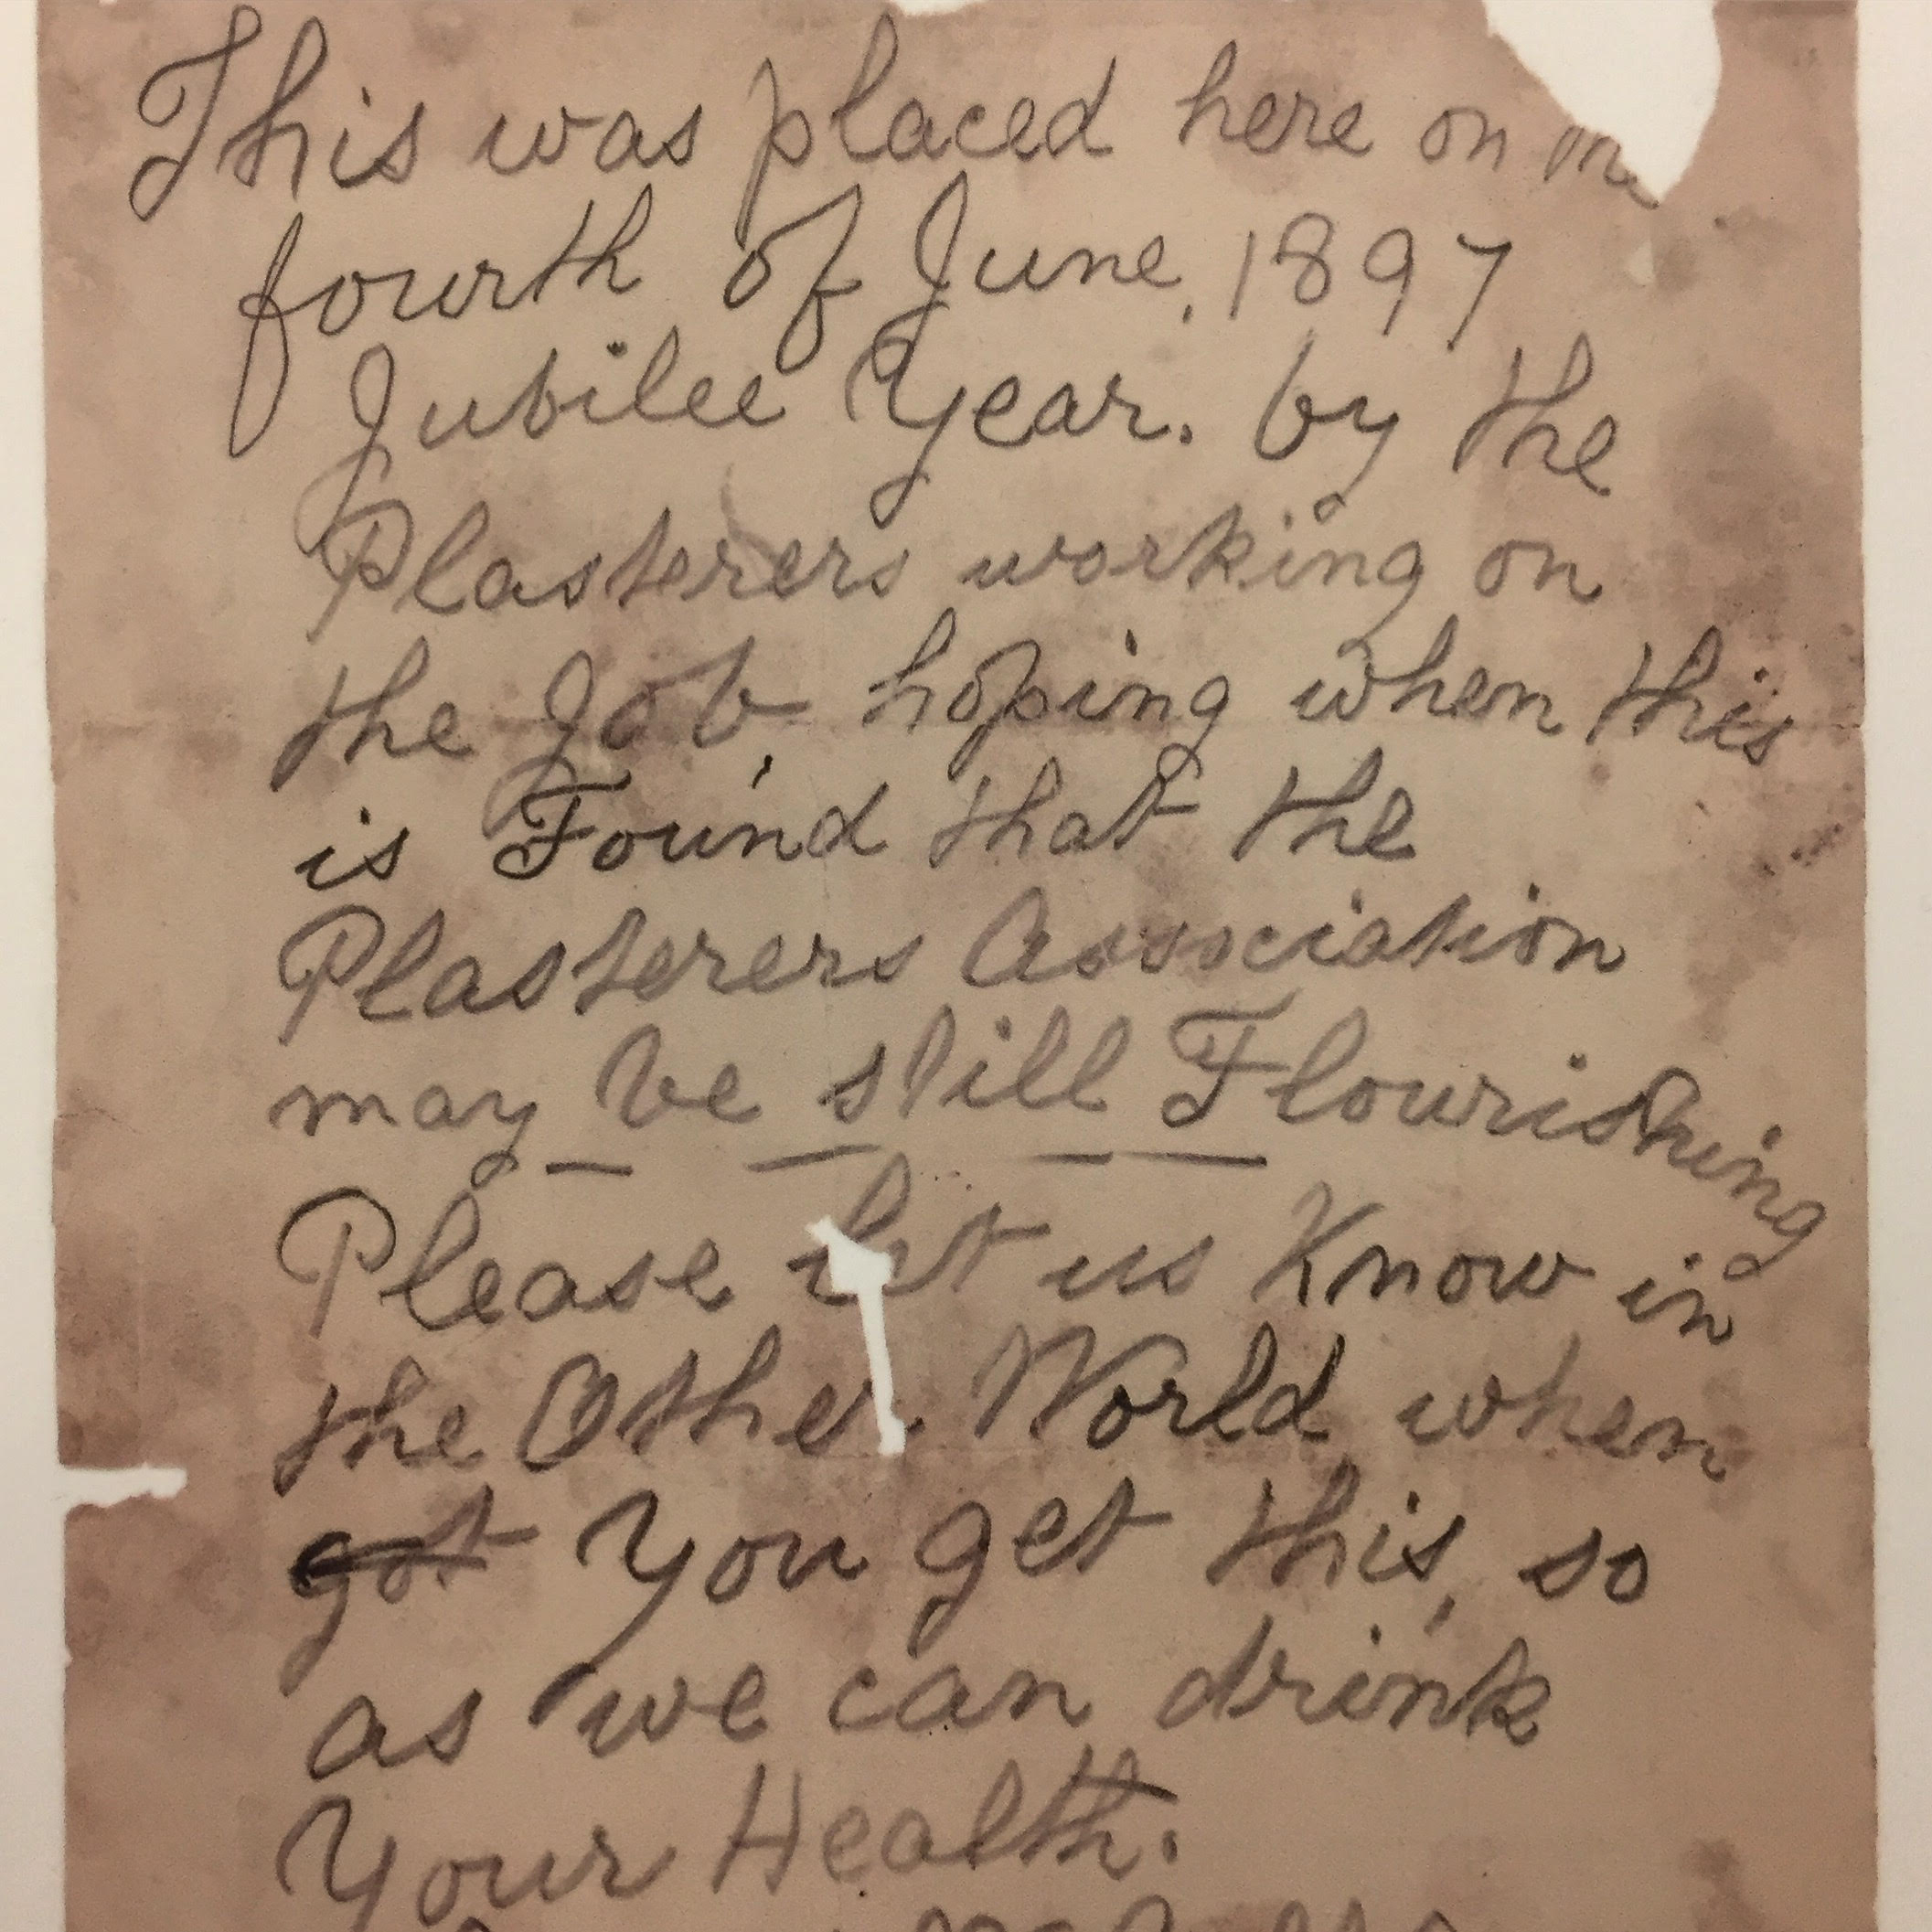 This was placed here on
fourth of June, 1897
Jubilee Year. by the
Plasterers working on
the Job, hoping when this
is Found that the
Plasterers Association
may be still Flourishing
Please let us Know in
the Other World when
got You get this, so
as we can drink
Your Health.